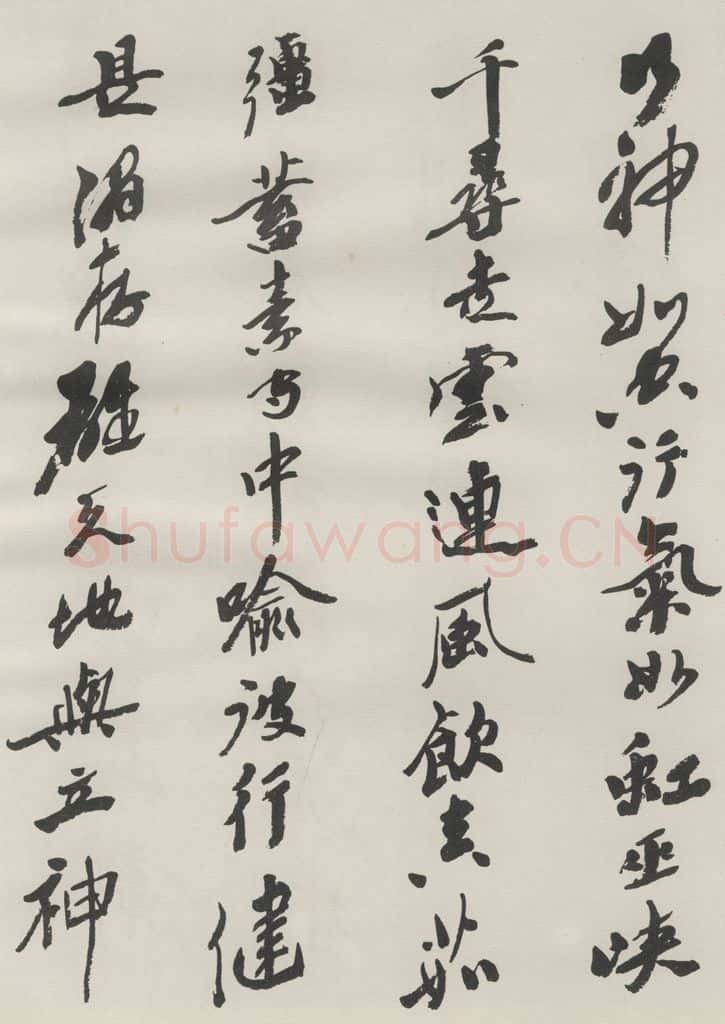 行神如空行氣如虹巫峽
千尋走雲連風飲真茹
彊蓄素守中喻彼行健
是謂存雄天地與立神
Shufawang.CN